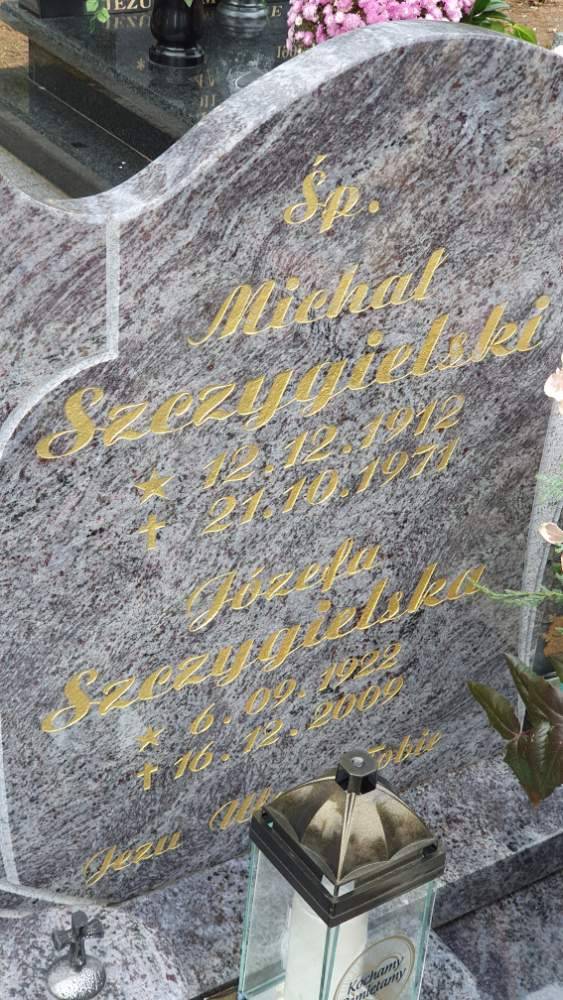 JEZU
Śp.
Michał
Szczygielski
★ 12.12.1912
✝ 21.10.1971
Józefa
Szczygielska
★ 6.09.1922
✝ 16.12.2009
Jezu Tobie
Kochamy
Pamiętamy